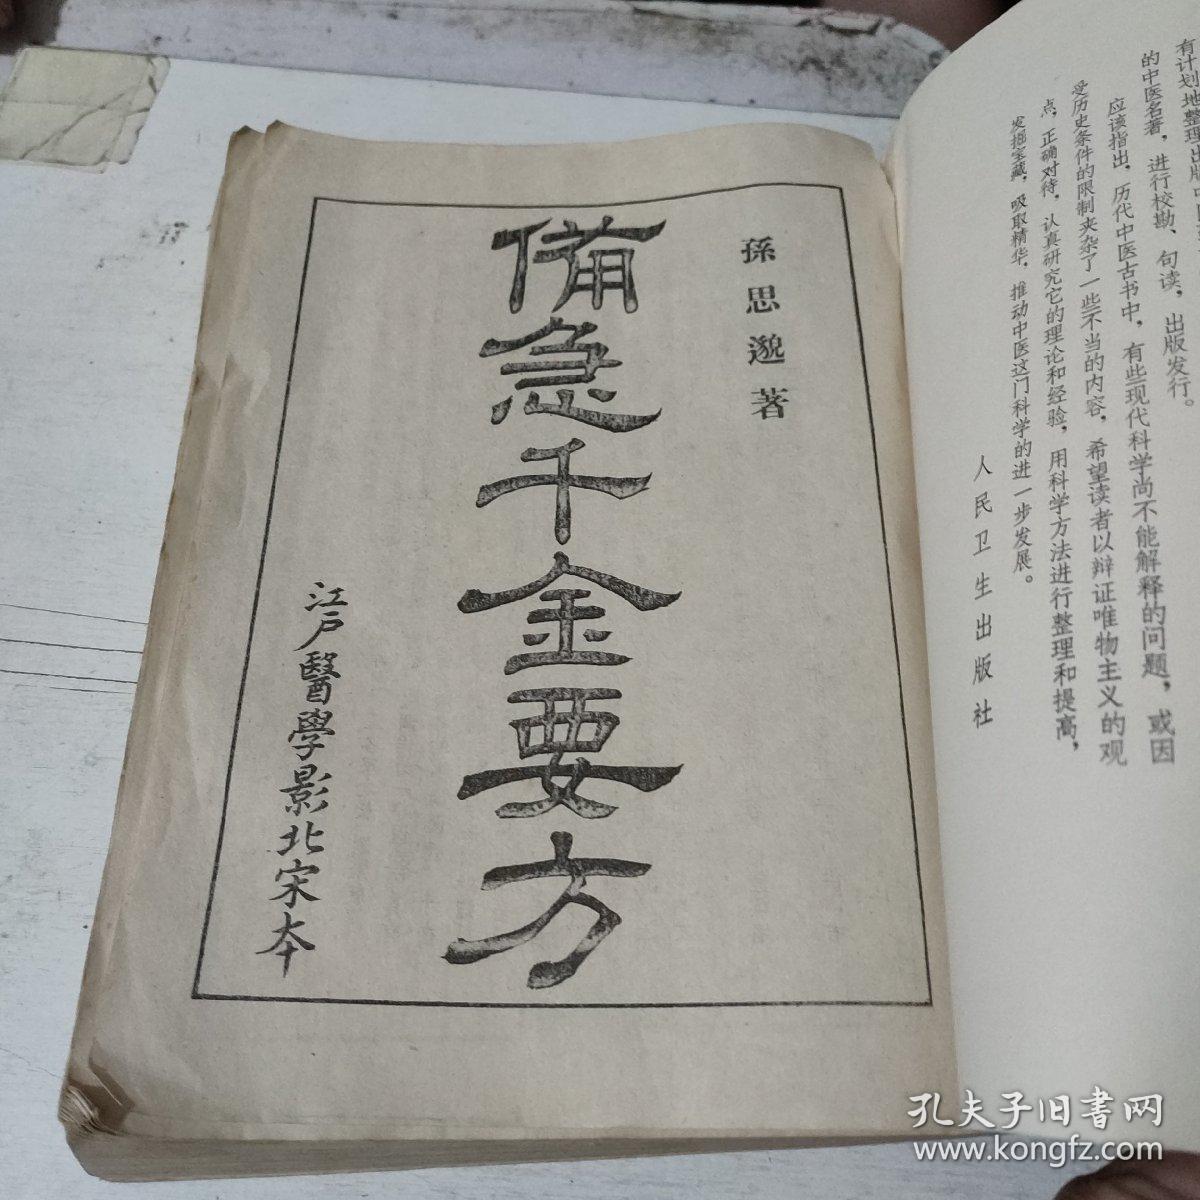 有计划地整理出版
的中医名著，进行校勘、句读，出版发行。
应该指出，历代中医古书中，有些现代科学尚不能解释的问题，或因
受历史条件的限制夹杂了一些不当的内容，希望读者以辩证唯物主义的观
点，正确对待，认真研究它的理论和经验，用科学方法进行整理和提高，
发掘宝藏，吸取精华，推动中医这门科学的进一步发展。
人民卫生出版社
孫思邈著
備急千金要方
江戶醫學影北宋本
孔夫子旧书网
www.kongfz.com